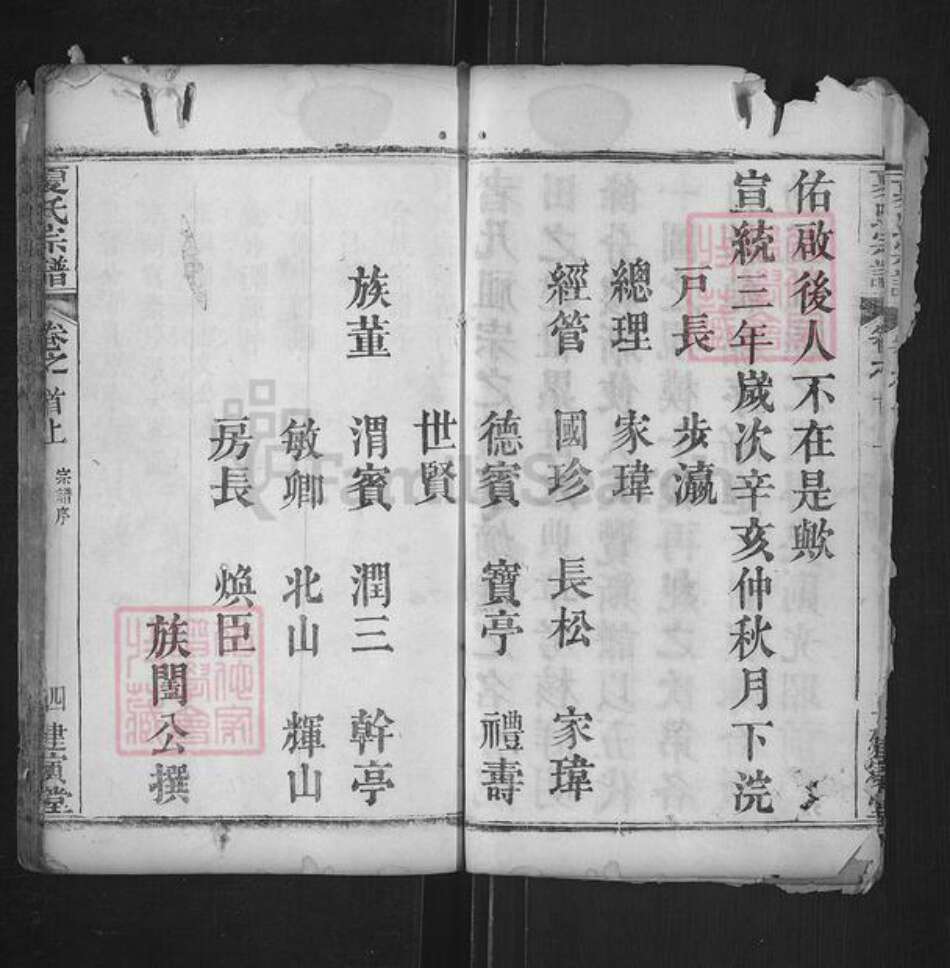 佑啟後人不在是歟
宣統三年歲次辛亥仲秋月下浣
戶長 步瀛
總理 家瑋
經管 國珍 長松 家瑋
德賓 寶亭 禮壽
世賢
族董 渭賓 潤三 幹亭
敏卿 北山 輝山
房長 煥臣
族闔公撰
夏氏宗譜 卷之首上 宗譜序 四 建寅堂
FamilySearch